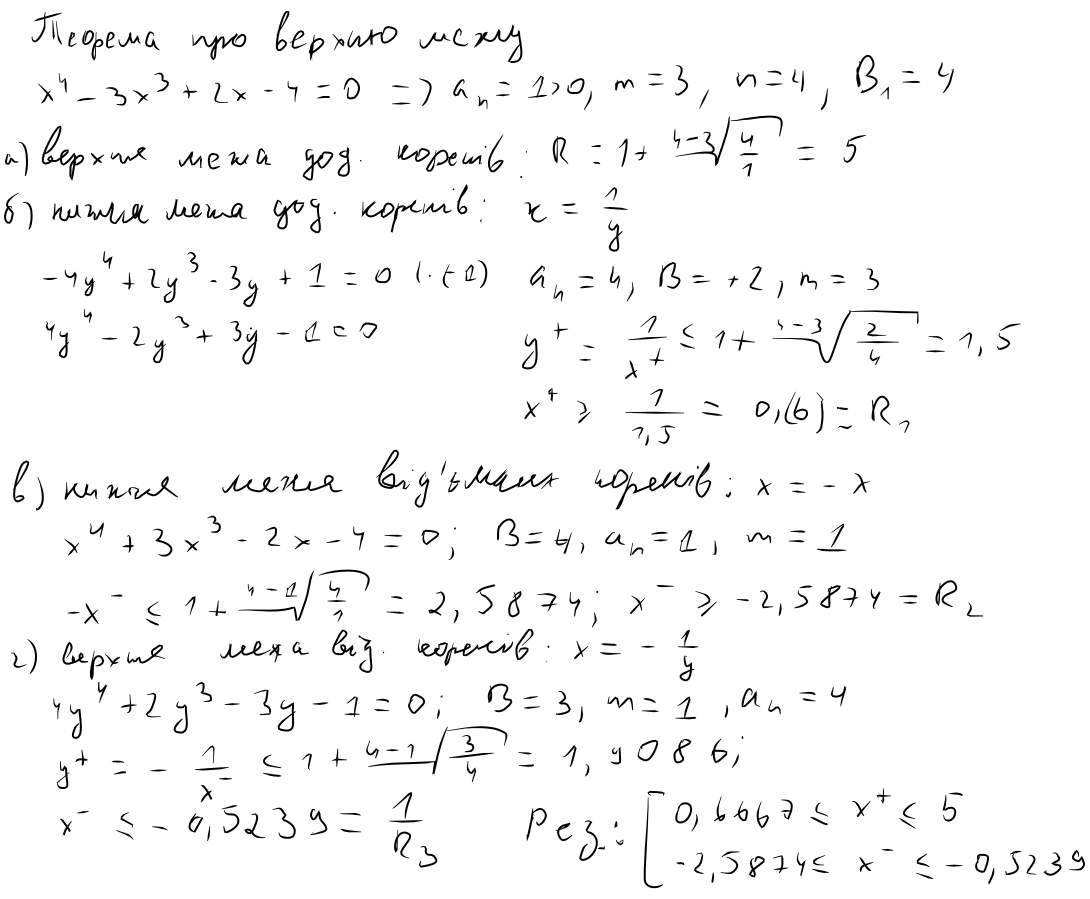 Теорема про верхню межу
x⁴ - 3x³ + 2x - 4 = 0 => aₙ = 1>0, m = 3, n = 4, B₁ = 4
а) верхня межа дод. коренів: R = 1 + ⁴⁻³√(4/1) = 5
б) нижня межа дод. коренів: x = 1/y
-4y⁴ + 2y³ - 3y + 1 = 0 (·(-1) aₙ = 4, B = +2, m = 3
4y⁴ - 2y³ + 3y - 1 = 0 y⁺ = 1/x⁺ ≤ 1 + ⁴⁻³√(2/4) = 1,5
x⁺ ≥ 1/1,5 = 0,(6) = R₁
в) нижня межа від'ємних коренів: x = -x
x⁴ + 3x³ - 2x - 4 = 0; B = 4, aₙ = 1, m = 1
-x⁻ ≤ 1 + ⁴⁻¹√(4/1) = 2,5874; x⁻ ≥ -2,5874 = R₂
г) верхня межа від. коренів: x = - 1/y
4y⁴ + 2y³ - 3y - 1 = 0; B = 3, m = 1, aₙ = 4
y⁺ = - 1/x⁻ ≤ 1 + ⁴⁻¹√(3/4) = 1,9086;
x⁻ ≤ - 0,5239 = 1/R₃ Рез.: [ 0,6667 ≤ x⁺ ≤ 5
-2,5874 ≤ x⁻ ≤ -0,5239